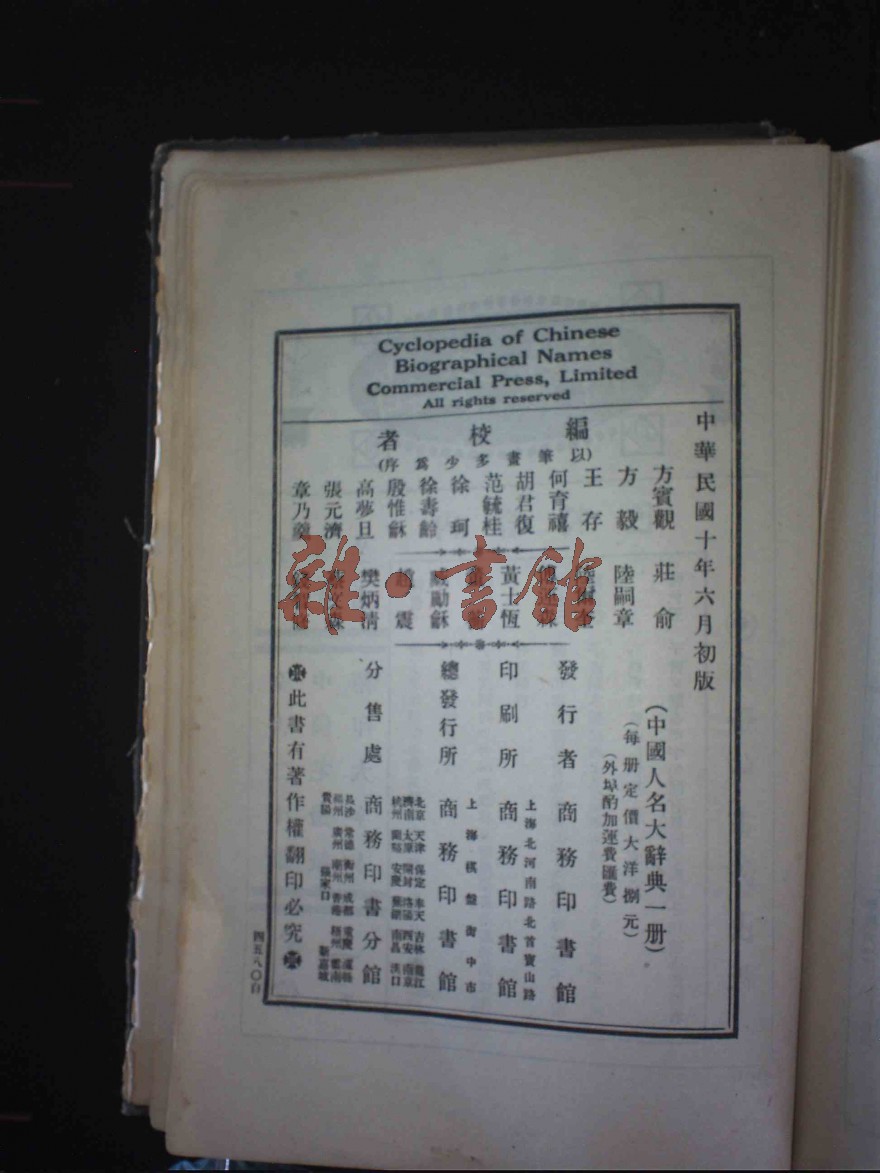 Cyclopedia of Chinese
Biographical Names
Commercial Press, Limited
All rights reserved
中華民國十年六月初版
(中國人名大辭典一册)
(每册定價大洋捌元)
(外埠酌加運費匯費)
編校者
(以筆畫多少爲序)
方賓觀
方毅
王存
何育禧
胡君復
范毓桂
徐珂
徐壽齡
殷惟龢
高夢旦
張元濟
章乃
莊俞
陸嗣章
黃士恆
臧勵龢
趙震
樊炳清
發行者 商務印書館
印刷所 上海北河南路北首寶山路 商務印書館
總發行所 上海棋盤街中市 商務印書館
分售處 商務印書分館
北京 天津 保定 奉天 吉林 龍江
濟南 太原 開封 洛陽 西安 南京
杭州 安慶 南昌 漢口
長沙 常德 衡州 成都 重慶
福州 廣州 潮州 香港 梧州 雲南
貴陽 張家口 新嘉坡
此書有著作權翻印必究
四五八〇自
雜·書館